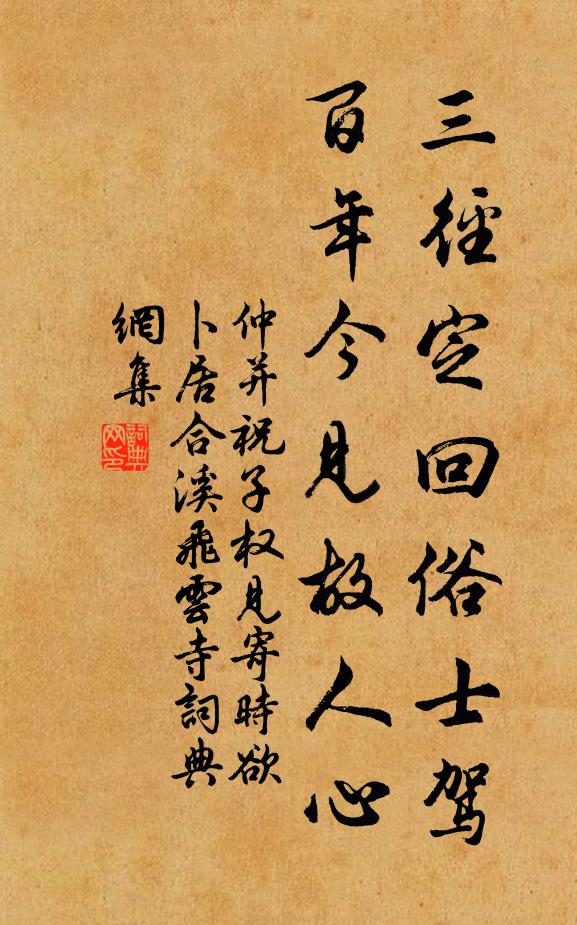 三徑定回俗士駕
百年今見故人心
仲并祝子权見寄時欲
卜居合溪飛雲寺詞典
網集
詞典
网印